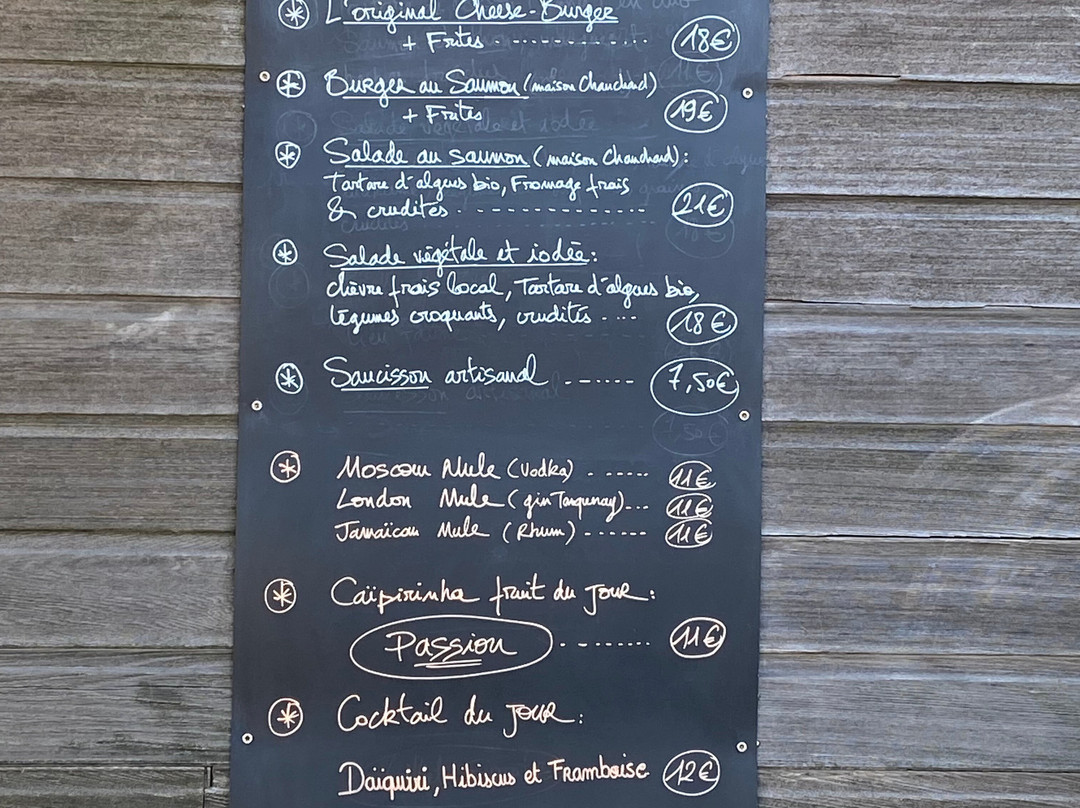 L'original Cheese-Burger
+ Frites 18€
Burger au Saumon (maison Chauchard)
+ Frites 19€
Salade au saumon (maison Chauchard):
Tartare d'algues bio, Fromage frais
& crudités 21€
Salade végétale et iodée:
chèvre frais local, Tartare d'algues bio,
légumes croquants, crudités 18€
Saucisson artisanal 7,50€
Moscow Mule (Vodka) 11€
London Mule (gin Tanqueray) 11€
Jamaïcan Mule (Rhum) 11€
Caïpirinha fruit du jour:
Passion 11€
Cocktail du jour:
Daïquiri, Hibiscus et Framboise 12€